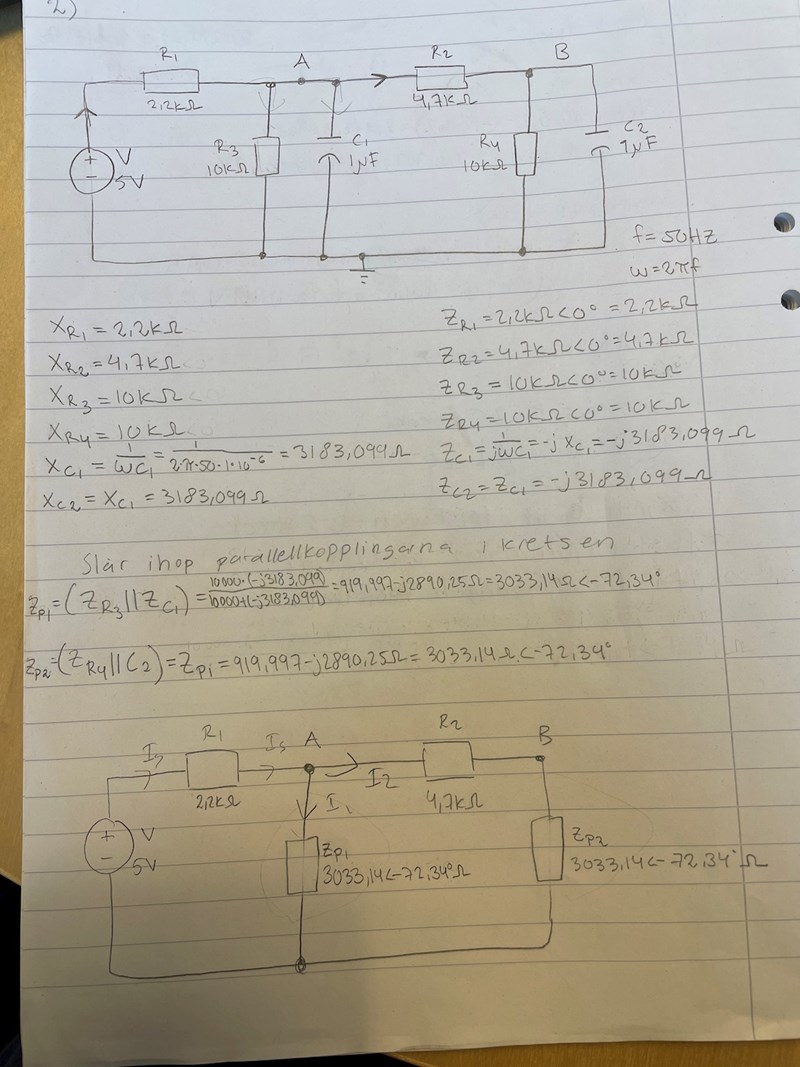 2)
R1
A
R2
B
2,2kΩ
4,7kΩ
V
5V
+
−
R3
10kΩ
C1
1µF
R4
10kΩ
C2
1µF
f=50HZ
ω=2πf
XR1 = 2,2kΩ
XR2 = 4,7kΩ
XR3 = 10kΩ
XR4 = 10kΩ
XC1 = 1/ωC1 = 1/2·π·50·1·10^-6 = 3183,099Ω
XC2 = XC1 = 3183,099Ω
ZR1 = 2,2kΩ<0° = 2,2kΩ
ZR2 = 4,7kΩ<0° = 4,7kΩ
ZR3 = 10kΩ<0° = 10kΩ
ZR4 = 10kΩ<0° = 10kΩ
ZC1 = 1/jωC1 = -j XC1 = -j3183,099Ω
ZC2 = ZC1 = -j3183,099Ω
Slår ihop parallellkopplingarna i kretsen
ZP1 = (ZR3||ZC1) = 10000·(-j3183,099)/10000+(-j3183,099) = 919,997-j2890,25Ω = 3033,14Ω<-72,34°
ZP2 = (ZR4||C2) = ZP1 = 919,997-j2890,25Ω = 3033,14Ω<-72,34°
Is
R1
Is
A
R2
B
2,2kΩ
I2
4,7kΩ
I1
+
−
V
5V
ZP1
3033,14<-72,34°Ω
ZP2
3033,14<-72,34°Ω